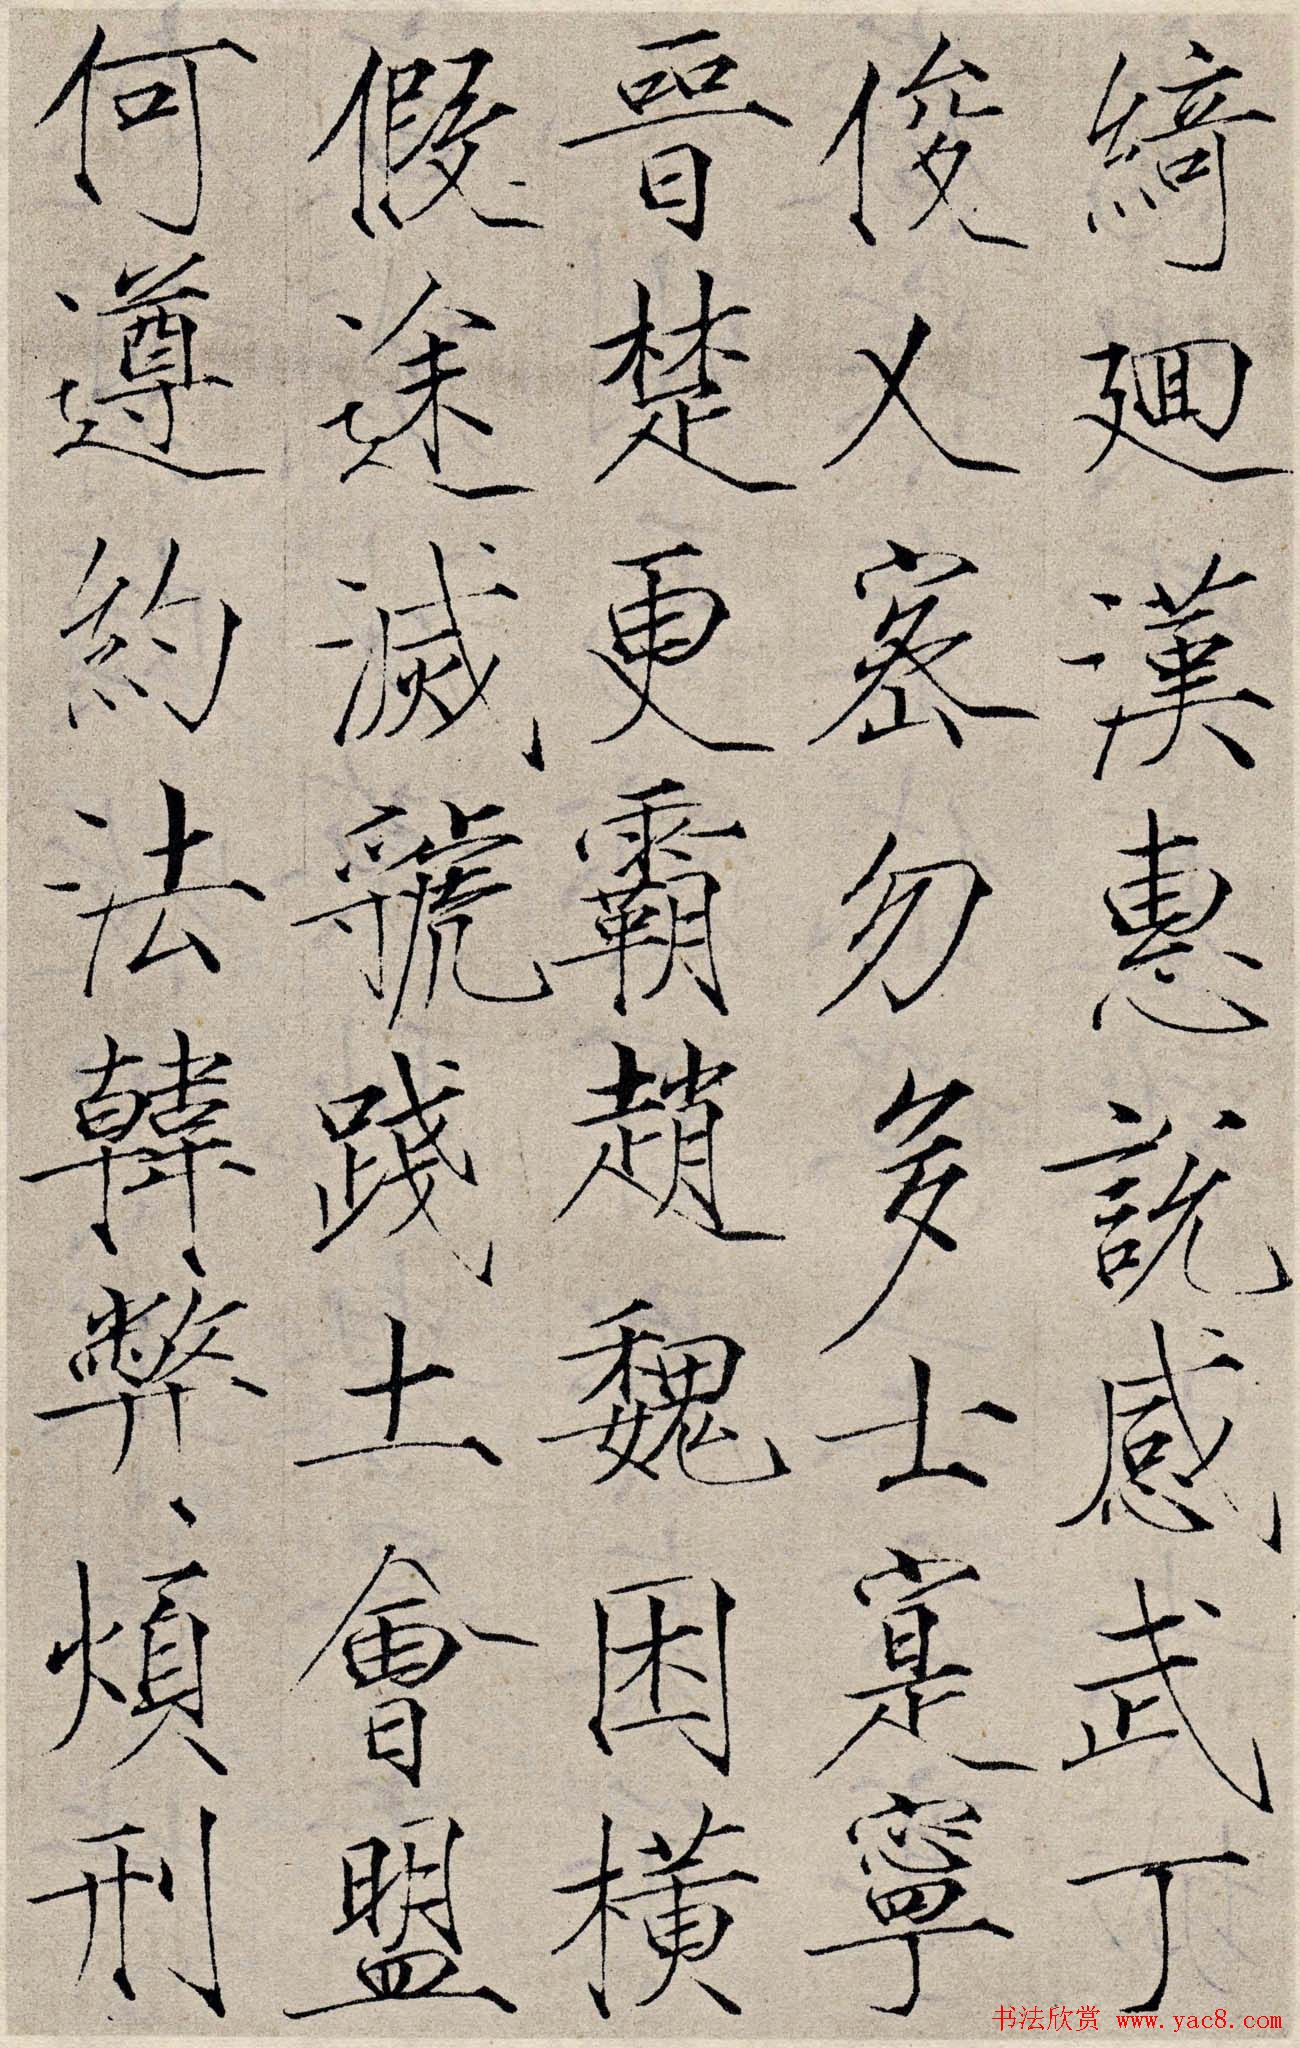 綺迴漢惠說感武丁
俊乂密勿多士寔寧
晉楚更霸趙魏困橫
假途滅虢踐土會盟
何遵約法韓弊煩刑
书法欣赏 www.yac8.com